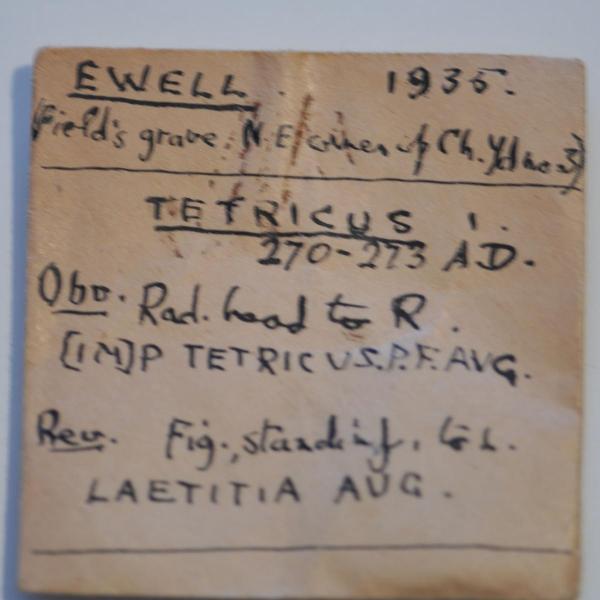 EWELL. 1935.
(Field's grave. N.E corner of Ch. Yd no 3)
TETRICUS I.
270-273 A.D.
Obv. Rad. head to R.
[IM]P TETRICUS.P.F.AVG.
Rev. Fig., standing, to L.
LAETITIA AUG.